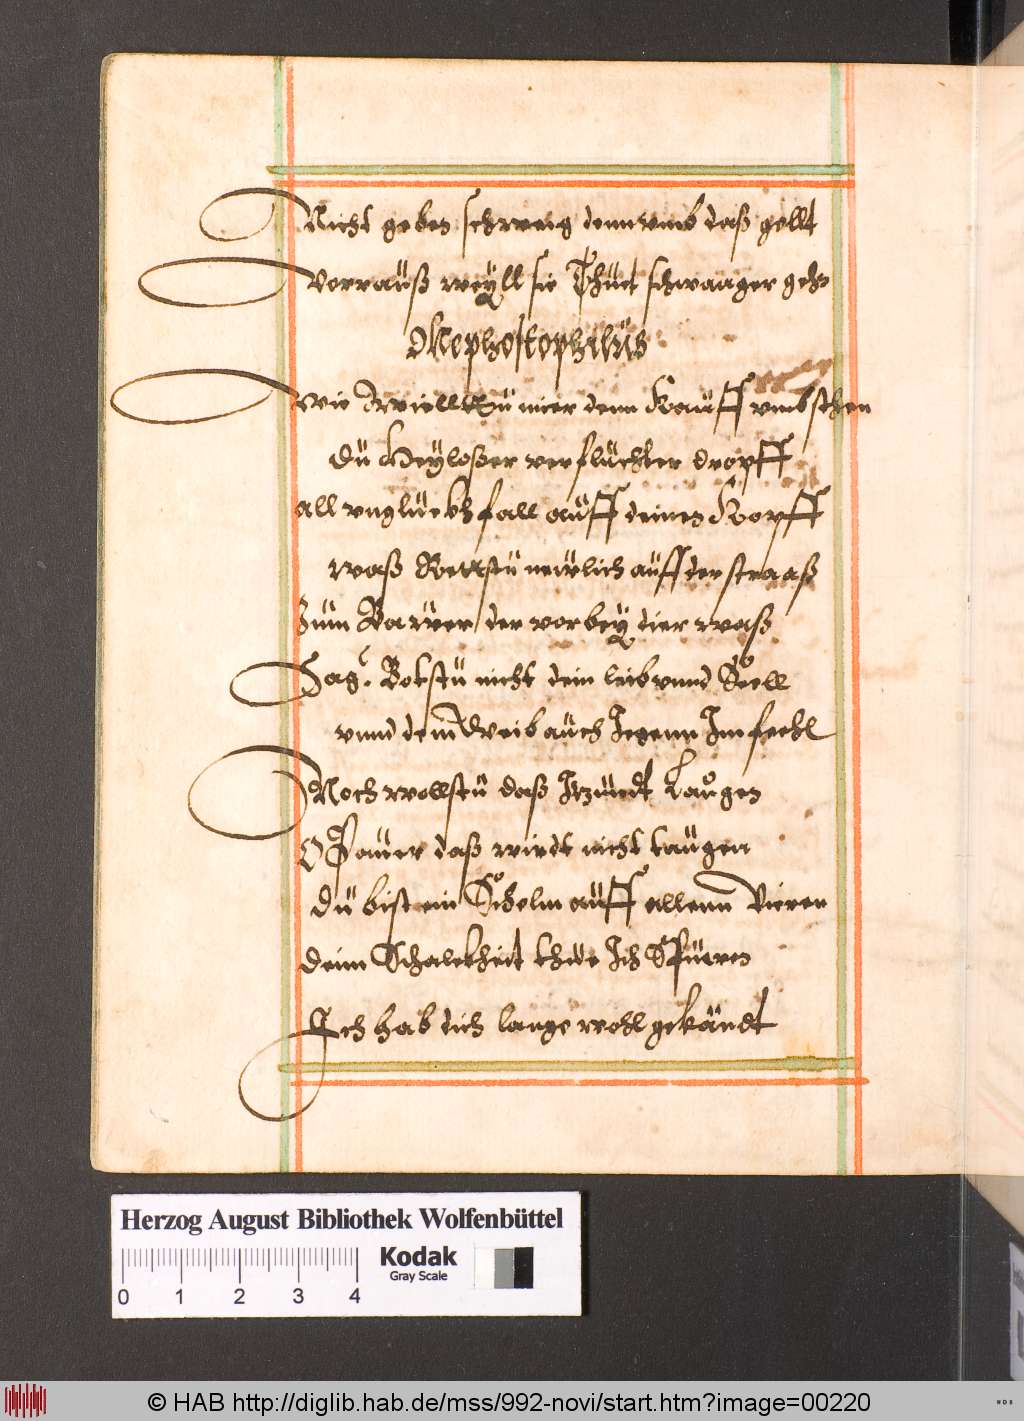 Nicht geben schweig denn vmb daß gellt
Vorrauß weyll sie Thuet schwanger gehn
Mephostophilus
Wie wiellttu mier denn Kauff vmbschen
du Heyloßer verfluchter dropff
all vngluekhfall auff deinen Kopff
waß Rettstu newlich auff der straaß
Zum Bawer der vorbey dier waß
Sag. Botstu nicht dein leib vnnd Seell
vnnd dem Weib auch Iegenn Im feehl
Noch wollstu daß Itzundt Laugen
O Pauer daß wirdt nicht taugen
du bist ein Schelm auff allenn Vieren
deinn Schalckheit thue Ich Spüeren
Ich hab dich lange wohl gekandt
Herzog August Bibliothek Wolfenbüttel
Kodak
Gray Scale
0 1 2 3 4
© HAB http://diglib.hab.de/mss/992-novi/start.htm?image=00220